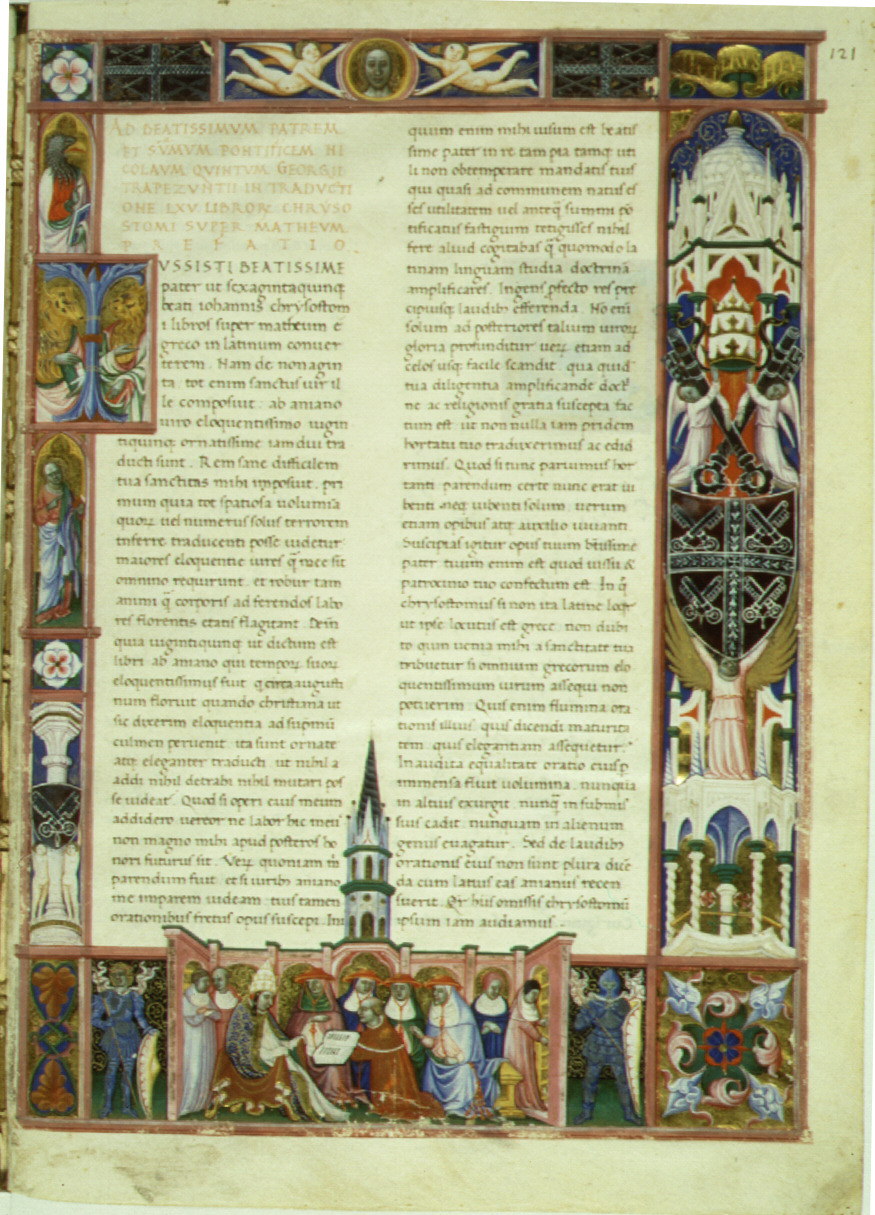 121
AD BEATISSIMVM PATREM
ET SV̄MVM PONTIFICEM NI
COLAVM QVINTVM GEORGII
TRAPEZVNTII IN TRADVCTI
ONE LXV LIBRORꝜ CHRYSO
STOMI SVPER MATHEVM
PREFATIO
IVSSISTI BEATISSIME
pater ut sexagintaquinq;
beati iohannis chrysostom
i libros super matheum e
greco in latinum conuer
terem. Nam de nonagin
ta tot enim sanctus uir il
le composuit ab aniano
uiro eloquentissimo uigin
tiquinq; ornatissime iam diu tra
ducti sunt. Rem sane difficilem
tua sanctitas mihi imposuit. pri
mum quia tot spatiosa uolumīa
quorꝝ uel numerus solus terrorem
inferre traducenti posse uidetur
maiores eloquentie uires q̄ in me sit
omnino requirunt. et robur tam
animi q̄ corporis ad ferendos labo
res florentis etatis flagitant. Dein
quia uigintiquinq; ut dictum est
libri ab aniano qui temporꝝ suorꝝ
eloquentissimus fuit q circa augusti
num floruit quando christiana ut
sic dixerim eloquentia ad supmū
culmen peruenit. ita sunt ornate
atq; eleganter traducti ut nihil a
addi nihil detrahi nihil mutari pos
se uideat. Quod si operi eius meum
addidero uereor ne labor hic meus
non magno mihi apud posteros ho
nori futurus sit. Verꝝ quoniam t̄n
parendum fuit. et si uiribꝫ aniano
me imparem uideam. tuis tamen
orationibus fretus opus suscepi. Im
quum enim mihi uisum est beatis
sime pater in re tam pia tamq; uti
li non obtemperare mandatis tuis
qui quasi ad communem natus es
ses utilitatem uel anteq̄ summi pō
tificatus fastigium tetigisses nihil
fere aliud cogitabas q̄ quomodo la
tinam linguam studia doctrinā
amplificares. Ingens profecto res pre
cipuisq; laudibꝫ efferenda. Nō eni
solum ad posteriores talium uirorꝝ
gloria profunditur uerꝝ etiam ad
celos usq; facile scandit. qua quid
tua diligentia amplificande doctr
ne ac religionis gratia suscepta fac
tum est. ut non nulla iam pridem
hortatu tuo traduxerimus ac edid
rimus. Quod si tunc paruimus hor
tanti parendum certe nunc erat iu
benti. neq; iubenti solum. uerum
etiam opibus atq; auxilio iuuanti.
Suscipias igitur opus tuum btissime
pater. tuum enim est quod iussu &
patrocinio tuo confectum est. In q̄
chrysostomus si non ita latine loqr
ut ipse locutus est grece. non dubi
to quin uenia mihi a sanctitate tua
tribuetur si omnium grecorum elo
quentissimum uirum assequi non
potuerim. Quis enim flumina ora
tionis illius. quis dicendi maturita
tem. quis elegantiam assequetur.
Inaudita equalitate oratio eius p
immensa fluit uolumina. nunqua
in altius exurgit. nunq̄ in submis
sius cadit. nunquam in alienum
genus euagatur. Sed de laudibꝫ
orationis eius non sunt plura dice
da cum latius eas anianus recen
suerit. Qr̄ his omissis chrysostomū
ipsum iam audiamus.